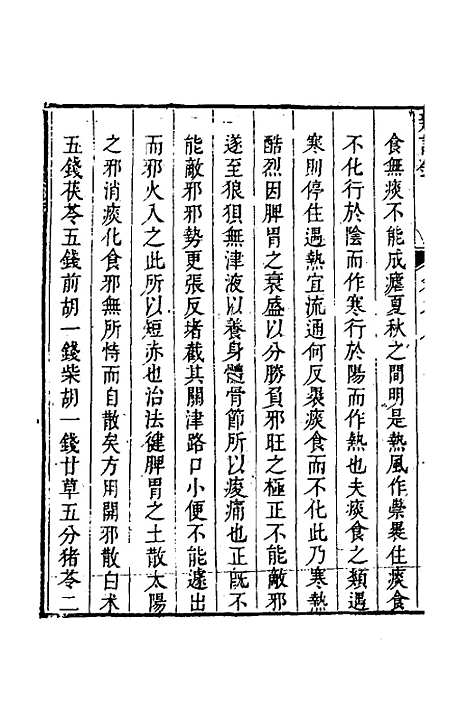 食無痰不能成瘧夏秋之間明是熱風作祟褁住痰食
不化行於陰而作寒行於陽而作熱也夫痰食之類遇
寒則停住遇熱宜流通何反褁痰食而不化此乃寒熱
酷烈因脾胃之衰盛以分勝負邪旺之極正不能敵邪
遂至狼狽無津液以養身體骨節所以痠痛也正既不
能敵邪邪勢更張反堵截其關津路口小便不能遽出
而邪火入之此所以短赤也治法徤脾胃之土散太陽
之邪消痰化食邪無所恃而自散矣方用開邪散白术
五錢茯苓五錢前胡一錢柴胡一錢甘草五分猪苓二